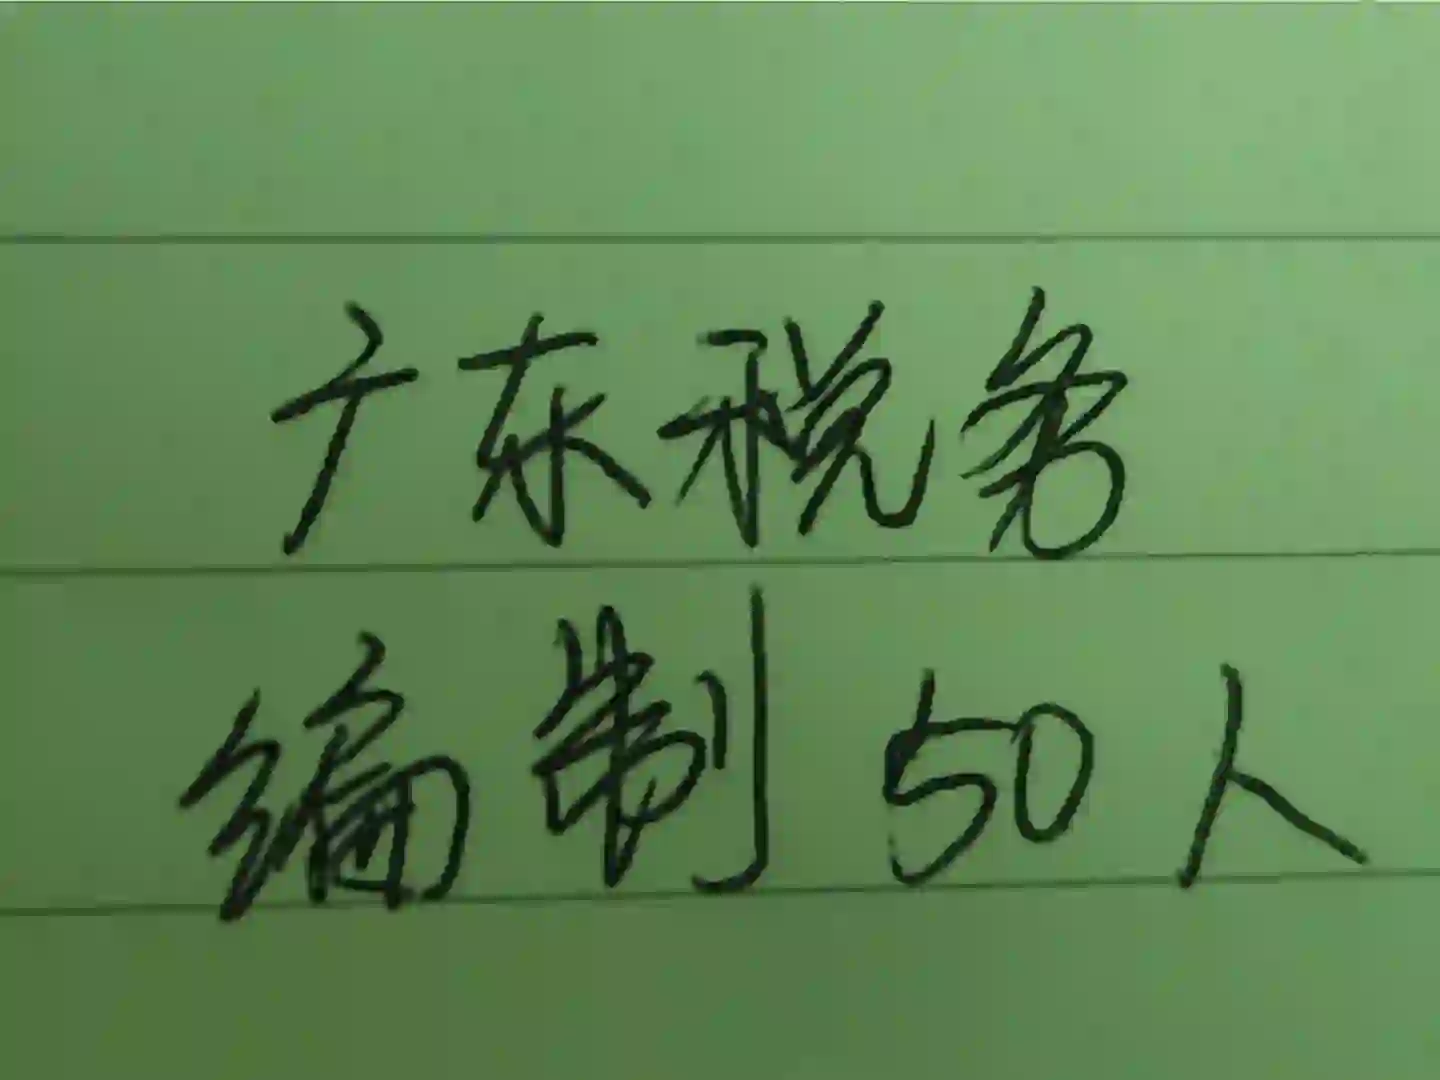 广东税务
编制50人